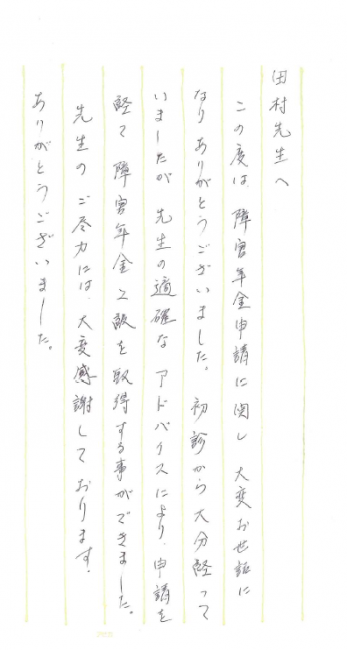 田村先生へ
この度は、障害年金申請に関し 大変お世話に
なり ありがとうございました。 初診から 大分経って
いましたが 先生の適確な アドバイスにより、申請を
経て 障害年金2級を取得する事ができました。
先生の ご尽力には、大変感謝しております。
ありがとうございました。